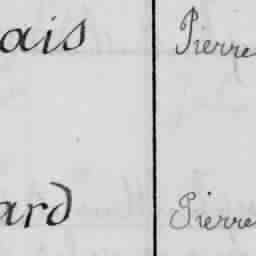 ais Pierre
ard Pierre